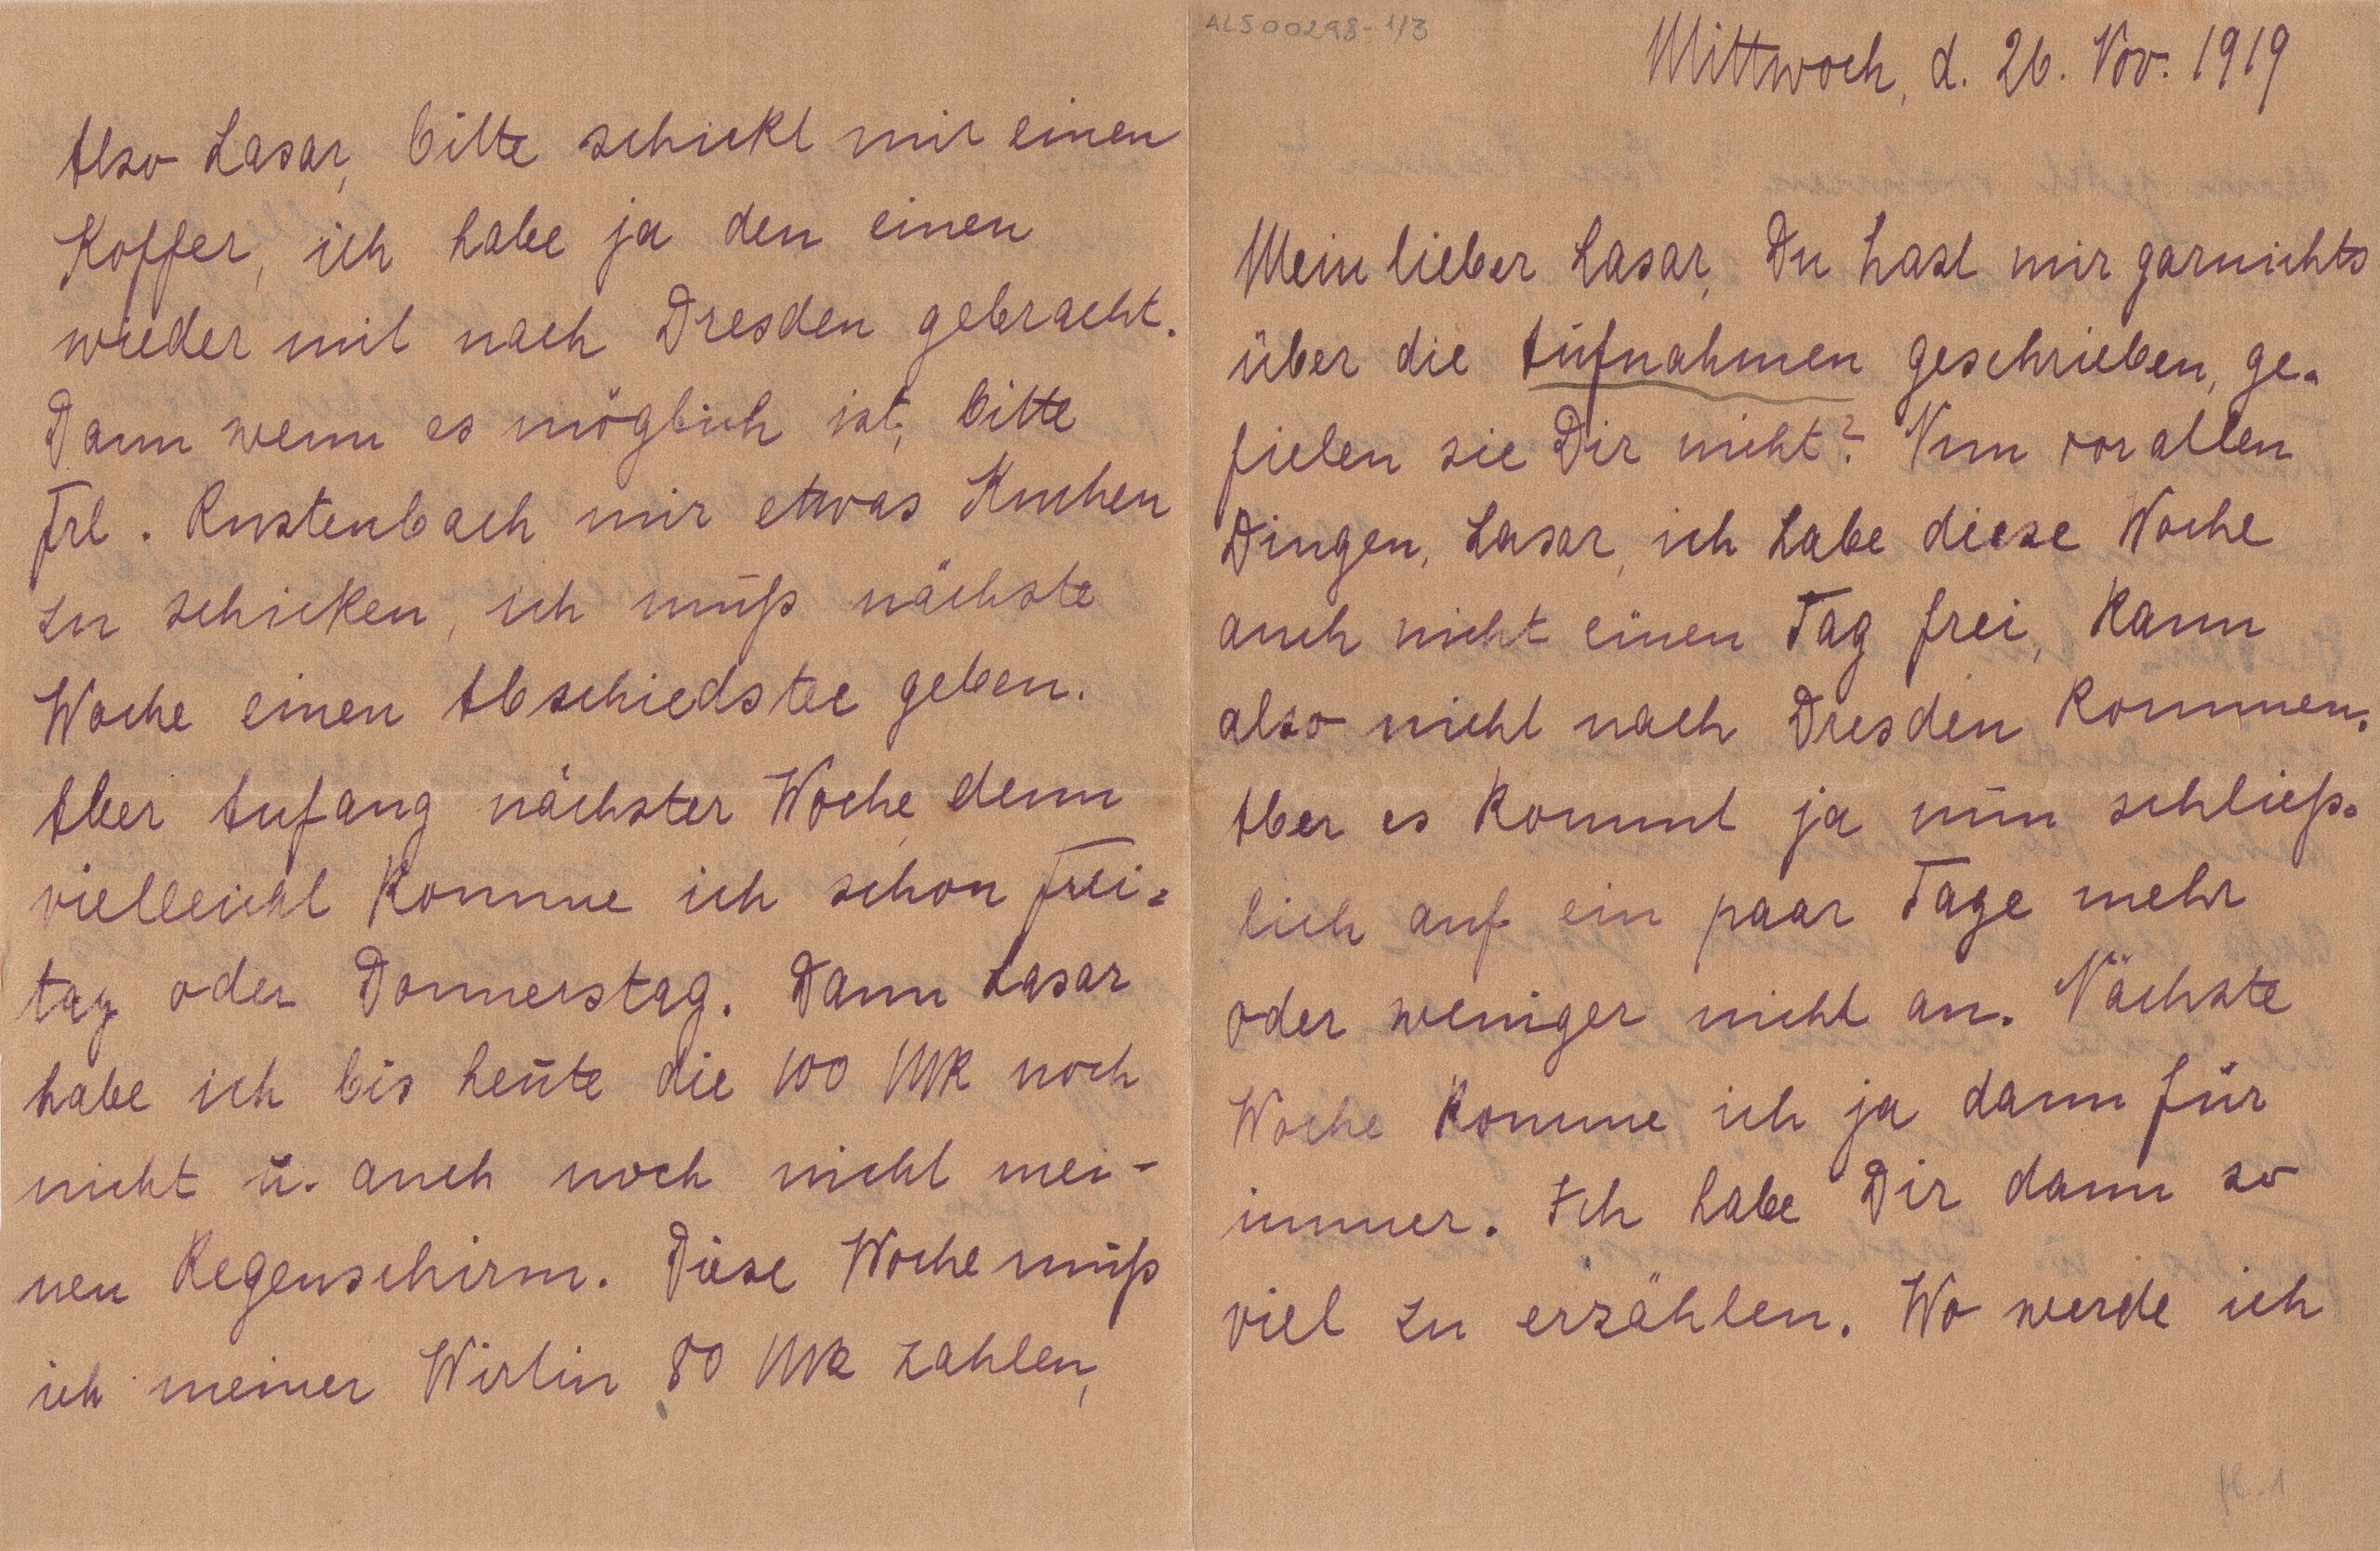 ALS00298-1/3
Mittwoch, d. 26. Nov. 1919
Mein lieber Lasar, Du hast mir garnichts
über die Aufnahmen geschrieben, ge-
fielen sie Dir nicht? Nun vor allen
Dingen, Lasar, ich habe diese Woche
auch nicht einen Tag frei, kann
also nicht nach Dresden kommen.
Aber es kommt ja nun schließ-
lich auf ein paar Tage mehr
oder weniger nicht an. Nächste
Woche komme ich ja dann für
immer. Ich habe Dir dann so
viel zu erzählen. Wo werde ich
Also Lasar, bitte schickt mir einen
Koffer, ich habe ja den einen
wieder mit nach Dresden gebracht.
Dann wenn es möglich ist, bitte
Frl. Rustenbach mir etwas Kuchen
zu schicken, ich muß nächste
Woche einen Abschiedstee geben.
Aber Anfang nächster Woche, denn
vielleicht komme ich schon Frei-
tag oder Donnerstag. Dann Lasar
habe ich bis heute die 100 Mk noch
nicht u. auch noch nicht mei-
nen Regenschirm. Diese Woche muß
ich meiner Wirtin 80 Mk zahlen,